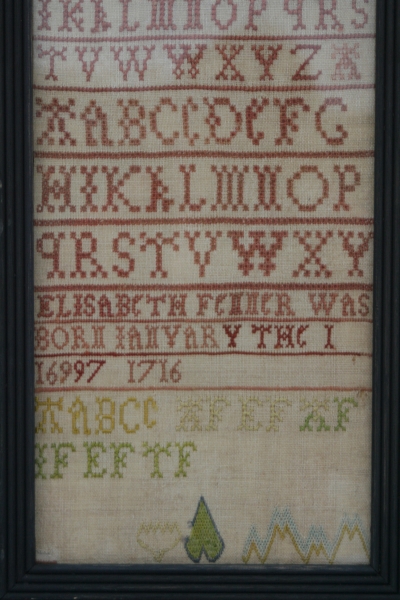 IKLMNOPQRS
TVWWXYZA
AABCCDEFG
HIKLLMNOP
QRSTVWXY
ELISABETH FENNER WAS
BORN IANVARY THE 1
16997 1716
AABCC AFEFAF
AFEFTF